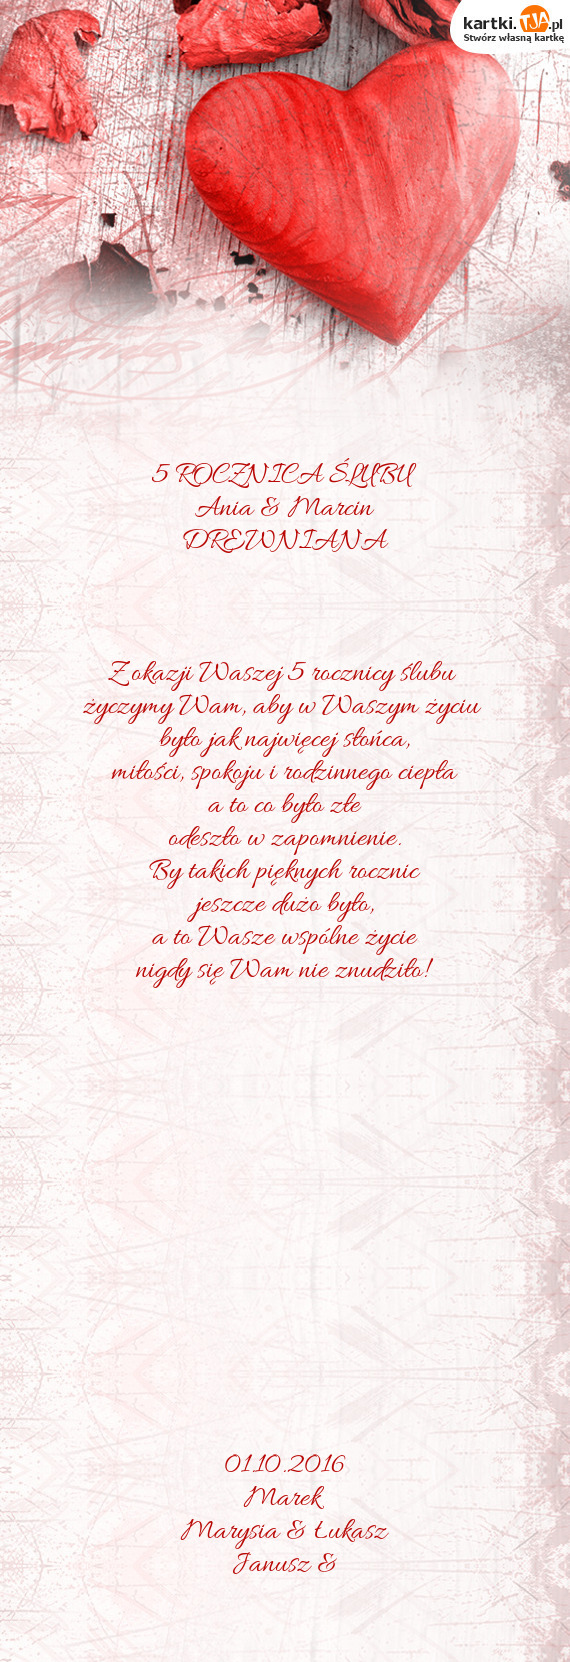 kartki.TJA.pl
Stwórz własną kartkę
5 ROCZNICA ŚLUBU
Ania & Marcin
DREWNIANA
Z okazji Waszej 5 rocznicy ślubu
życzymy Wam, aby w Waszym życiu
było jak najwięcej słońca,
miłości, spokoju i rodzinnego ciepła
a to co było złe
odeszło w zapomnienie.
By takich pięknych rocznic
jeszcze dużo było,
a to Wasze wspólne życie
nigdy się Wam nie znudziło!
01.10.2016
Marek
Marysia & Łukasz
Janusz &